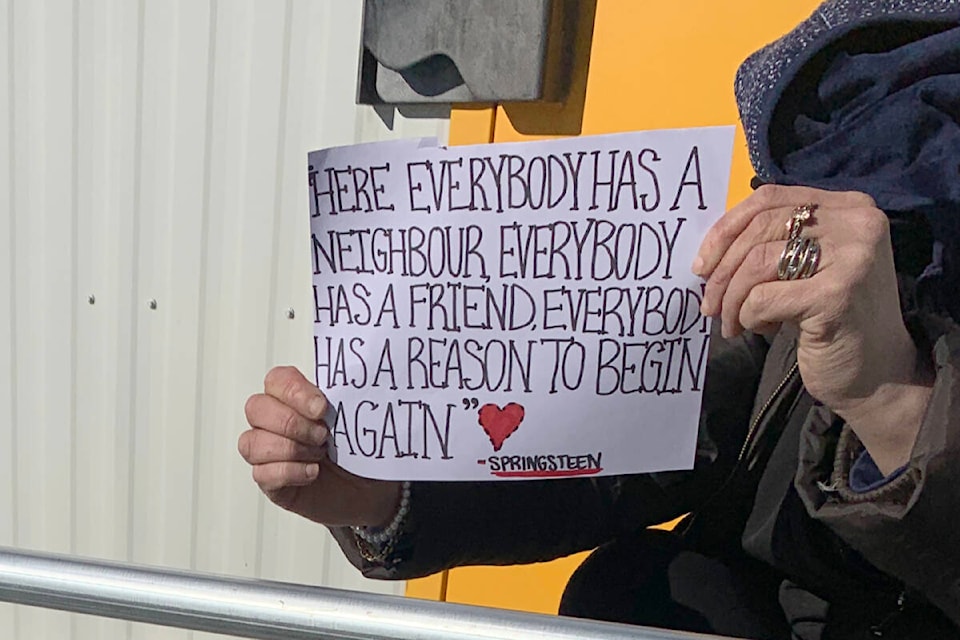 "HERE EVERYBODY HAS A
NEIGHBOUR, EVERYBODY
HAS A FRIEND, EVERYBODY
HAS A REASON TO BEGIN
AGAIN"
-SPRINGSTEEN